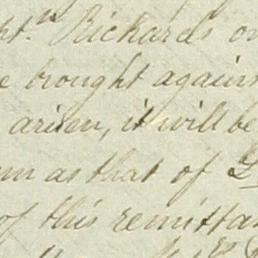 pt.n Richards on
e brought against
arisen, it will be
m as that of
of this remittan